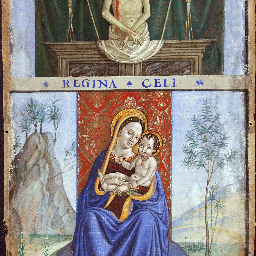 REGINA CELI